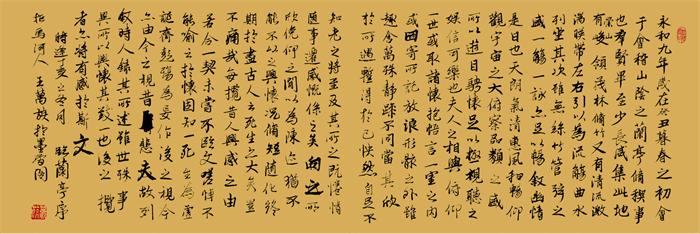 永和九年歲在癸丑暮春之初會
于會稽山陰之蘭亭脩稧事
也羣賢畢至少長咸集此地
有崇山峻領茂林脩竹又有清流激
湍暎帶左右引以為流觴曲水
列坐其次雖無絲竹管弦之
盛一觴一詠亦足以暢敘幽情
是日也天朗氣清惠風和暢仰
觀宇宙之大俯察品類之盛
所以遊目騁懷足以極視聽之
娛信可樂也夫人之相與俯仰
一世或取諸懷抱悟言一室之內
或因寄所託放浪形骸之外雖
趣舍萬殊靜躁不同當其欣
於所遇暫得於己怏然自足不
知老之將至及其所之既惓情
隨事遷感慨係之矣向之所
欣俛仰之間以為陳迹猶不
能不以之興懷況脩短隨化終
期於盡古人云死生亦大矣豈
不痛哉每攬昔人興感之由
若合一契未嘗不臨文嗟悼不
能喻之於懷固知一死生為虛
誕齊彭殤為妄作後之視今
亦由今之視昔悲夫故列
敘時人錄其所述雖世殊事
異所以興懷其致一也後之攬
者亦將有感於斯文
臨蘭亭序
時逢丁亥之冬月
馬河人王萬族於墨